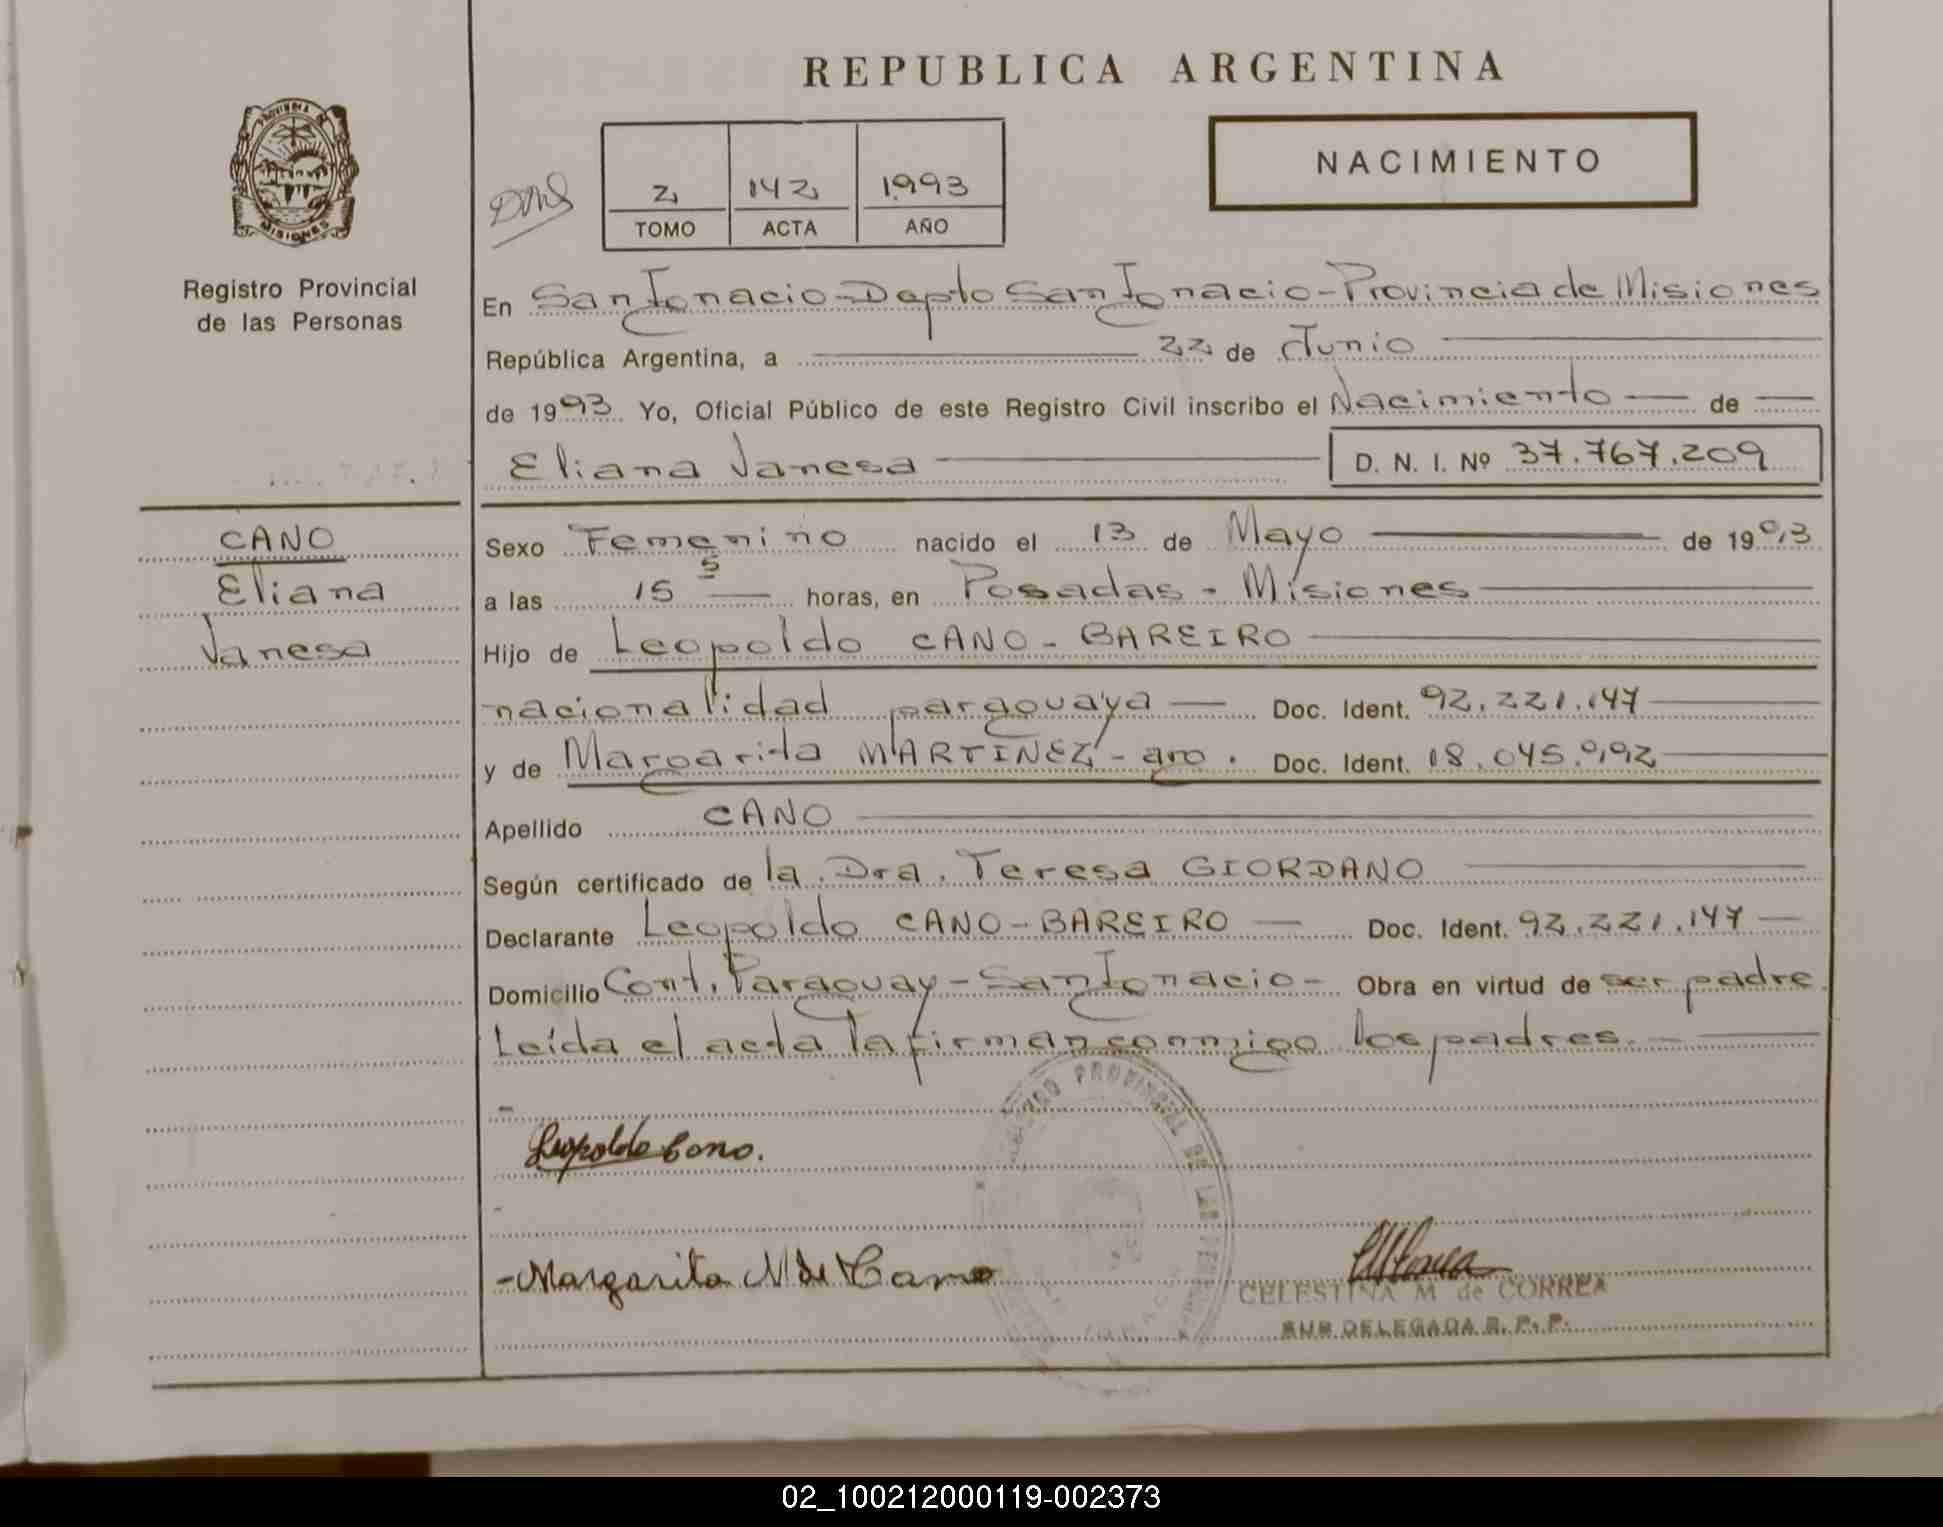 REPUBLICA ARGENTINA
PROVINCIA DE
MISIONES
Registro Provincial
de las Personas
2 142 1993
TOMO ACTA AÑO
NACIMIENTO
En San Ignacio - Depto San Ignacio - Provincia de Misiones
República Argentina, a 22 de Junio
de 1993 Yo, Oficial Público de este Registro Civil inscribo el Nacimiento de
Eliana Vanesa D. N. I. Nº 37.767.209
CANO
Eliana
Vanesa
Sexo Femenino nacido el 13 de Mayo de 1993
a las 15 5 horas, en Posadas - Misiones
Hijo de Leopoldo CANO - BAREIRO
nacionalidad paraguaya Doc. Ident. 92.221.147
y de Margarita MARTINEZ - arg. Doc. Ident. 18.045.992
Apellido CANO
Según certificado de la Dra. Teresa GIORDANO
Declarante Leopoldo CANO - BAREIRO Doc. Ident. 92.221.147
Domicilio Cont. Paraguay - San Ignacio - Obra en virtud de ser padre
Leída el acta la firman conmigo los padres. -
REGISTRO PROVINCIAL DE LAS PERSONAS
Leopoldo Cano.
- Margarita M de Cano
CELESTINA M de CORREA
SUB DELEGADA R. P. P.
02_100212000119-002373